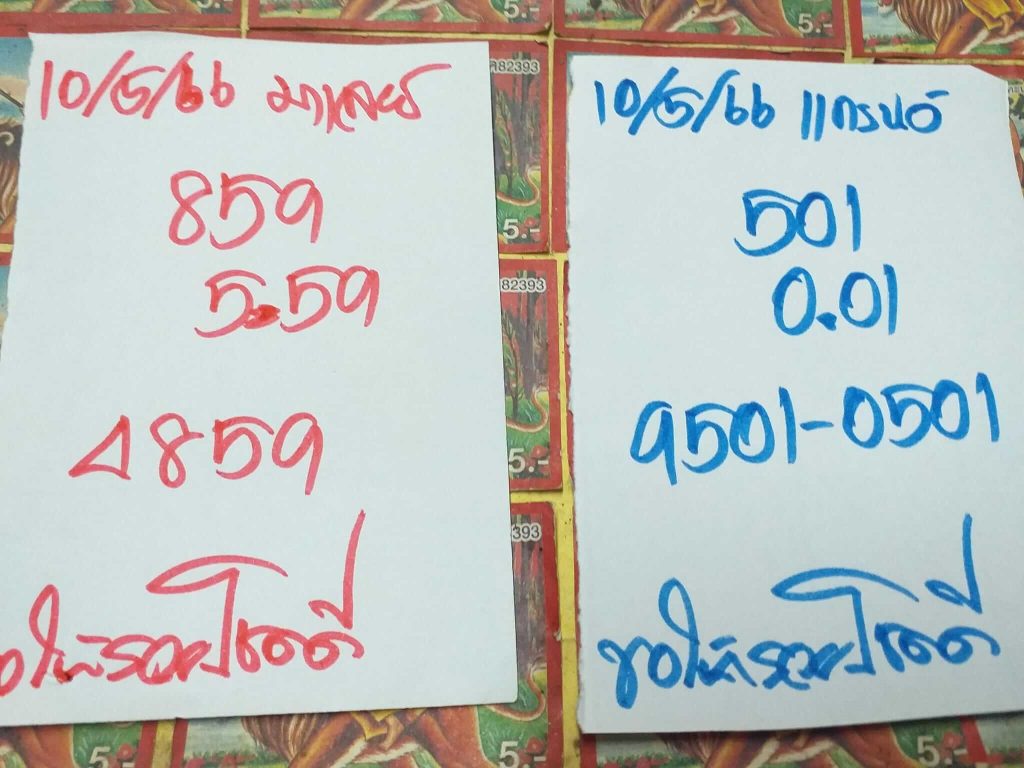 10/5/66 มาเลย์
859
5.59
4859
ขอให้รวยโชคดี
10/5/66 แกรนด์
501
0.01
9501-0501
ขอให้รวยโชคดี
5.-
5.-
82393
5.-
82393
5.-
393
5.-
5.-
5.-